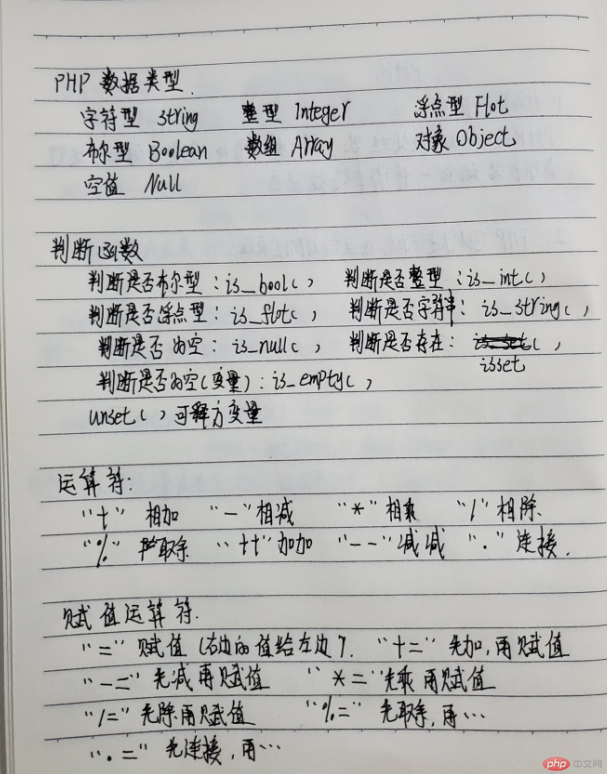 PHP 数据类型.
字符型 string 整型 Integer 浮点型 Flot
布尔型 Boolean 数组 Array 对象 Object
空值 Null
判断函数
判断是否布尔型：is_bool( ) 判断是否整型：is_int( )
判断是否浮点型：is_flot( ) 判断是否字符串：is_string( )
判断是否为空：is_null( ) 判断是否存在：is_set( )
isset
判断是否为空(变量)：is_empty( )
unset( ) 可释方变量
运算符：
"+" 相加 "-" 相减 "*" 相乘 "/" 相除
"%" 取余 "++" 加加 "--" 减减 "." 连接.
赋值运算符.
"=" 赋值 (右边的值给左边). "+=" 先加,再赋值
"-=" 先减再赋值 "*=" 先乘再赋值
"/=" 先除再赋值 "%=" 先取余,再…
".=" 先连接,再…
php 中文网